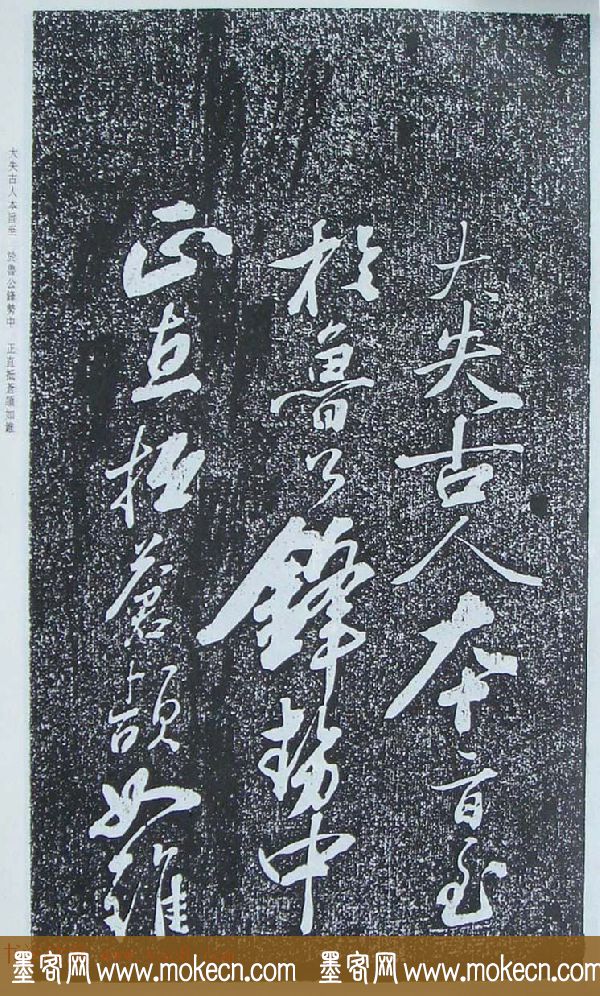 大失古人本旨至
於魯公鋒勢中
正直抵蒼頡如錐
大失古人本旨至 於魯公鋒勢中 正直抵蒼頡如錐
墨客网 www.mokecn.com 墨客网 www.mokecn.com